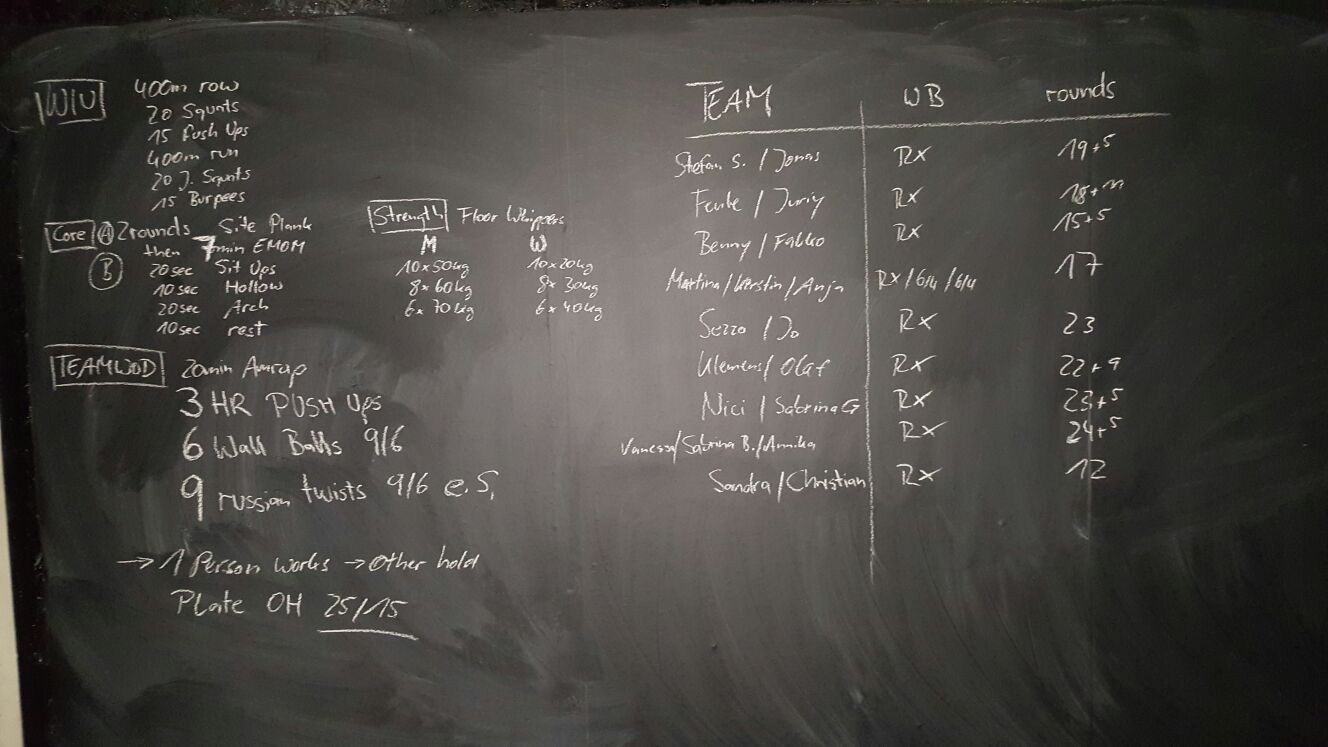 W/U
400m row
20 Squats
15 Push Ups
400m run
20 J. Squats
15 Burpees
Core A 2rounds Site Plank
then 7min EMOM
B
20sec Sit Ups
10sec Hollow
20sec Arch
10sec rest
Strength Floor Whippers
M W
10x50kg 10x20kg
8x60kg 8x30kg
6x70kg 6x40kg
TEAMWOD 20min Amrap
3 HR PUSH Ups
6 Wall Balls 9/6
9 russian twists 9/6 e.S.
→ 1 Person works → Other hold
Plate OH 25/15
TEAM WB rounds
Stefan S. / Jonas RX 19+5
Femke / Juriy RX 18+11
Benny / Falko RX 15+5
Martina / Kerstin / Anja RX / 6/4 / 6/4 17
Sezzo / Jo RX 23
Klemens / Olaf RX 22+9
Nici / Sabrina G RX 23+5
Vanessa / Sabrina B. / Annika RX 24+5
Sandra / Christian RX 12